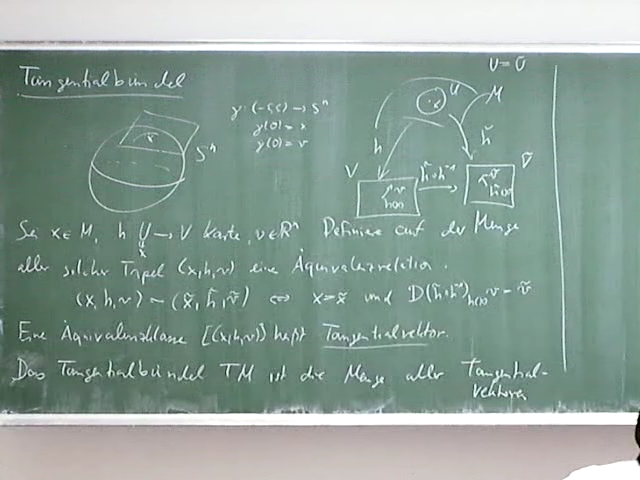 Tangentialbündel
S^n
γ: (-ε,ε) → S^n
γ(0) = x
γ̇(0) = v
U = Ũ
U
M
x
h
h̃
V
Ṽ
h̃∘h⁻¹
v
h(x)
ṽ
h̃(x)
Sei x∈M, h: U → V Karte, v∈ℝ^n Definiere auf der Menge
x
aller solcher Tripel (x,h,v) eine Äquivalenzrelation.
(x,h,v) ~ (x̃,h̃,ṽ) ⇔ x=x̃ und D(h̃∘h⁻¹)_{h(x)} v = ṽ
Eine Äquivalenzklasse [(x,h,v)] heißt Tangentialvektor.
Das Tangentialbündel TM ist die Menge aller Tangential-
vektoren